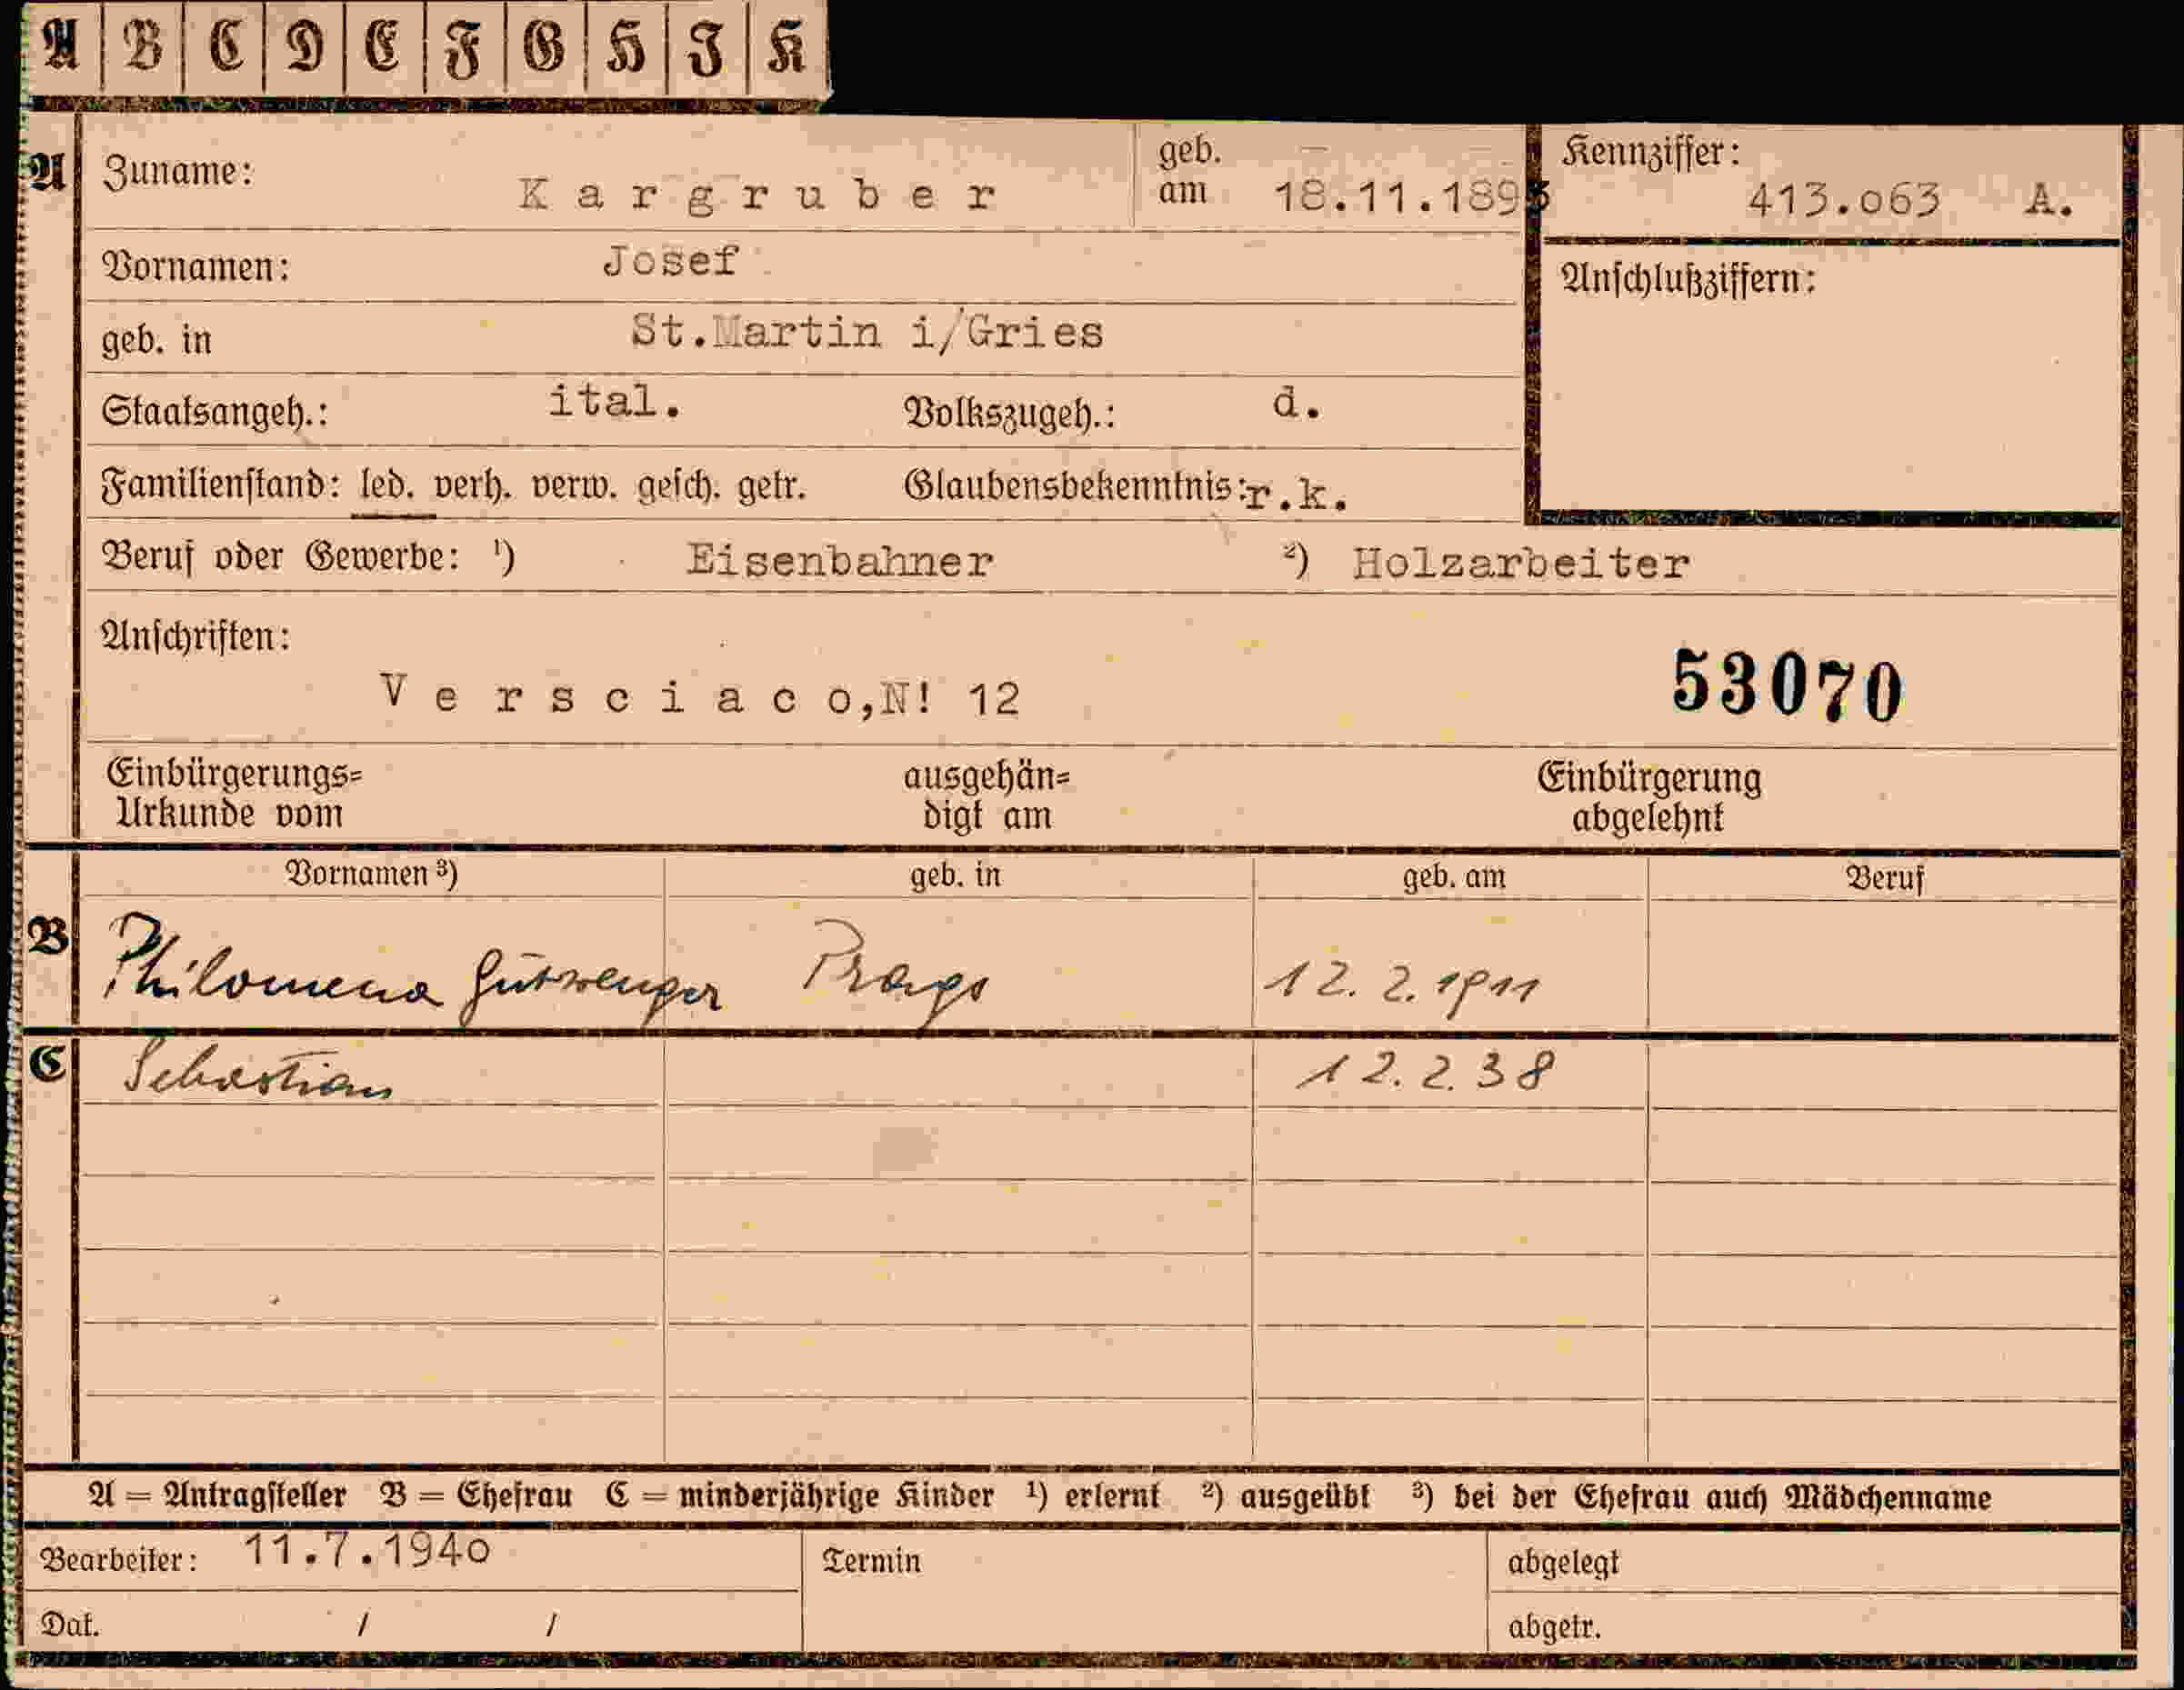 A B C D E F G H I K
A Zuname: Kargruber geb. am 18.11.1893 Kennziffer: 413.o63 A.
Vornamen: Josef Anschlußziffern:
geb. in St.Martin i/Gries
Staatsangeh.: ital. Volkszugeh.: d.
Familienstand: led. verh. verw. gesch. getr. Glaubensbekenntnis: r.k.
Beruf oder Gewerbe: ¹) Eisenbahner ²) Holzarbeiter
Anschriften:
Versciaco,N! 12 53070
Einbürgerungs= Urkunde vom ausgehän= digt am Einbürgerung abgelehnt
Vornamen ³) geb. in geb. am Beruf
B Philomena Gutwenger Prags 12.2.1911
C Sebastian 12.2.38
A = Antragsteller B = Ehefrau C = minderjährige Kinder ¹) erlernt ²) ausgeübt ³) bei der Ehefrau auch Mädchenname
Bearbeiter: 11.7.194o Termin abgelegt
Dat. / / abgetr.